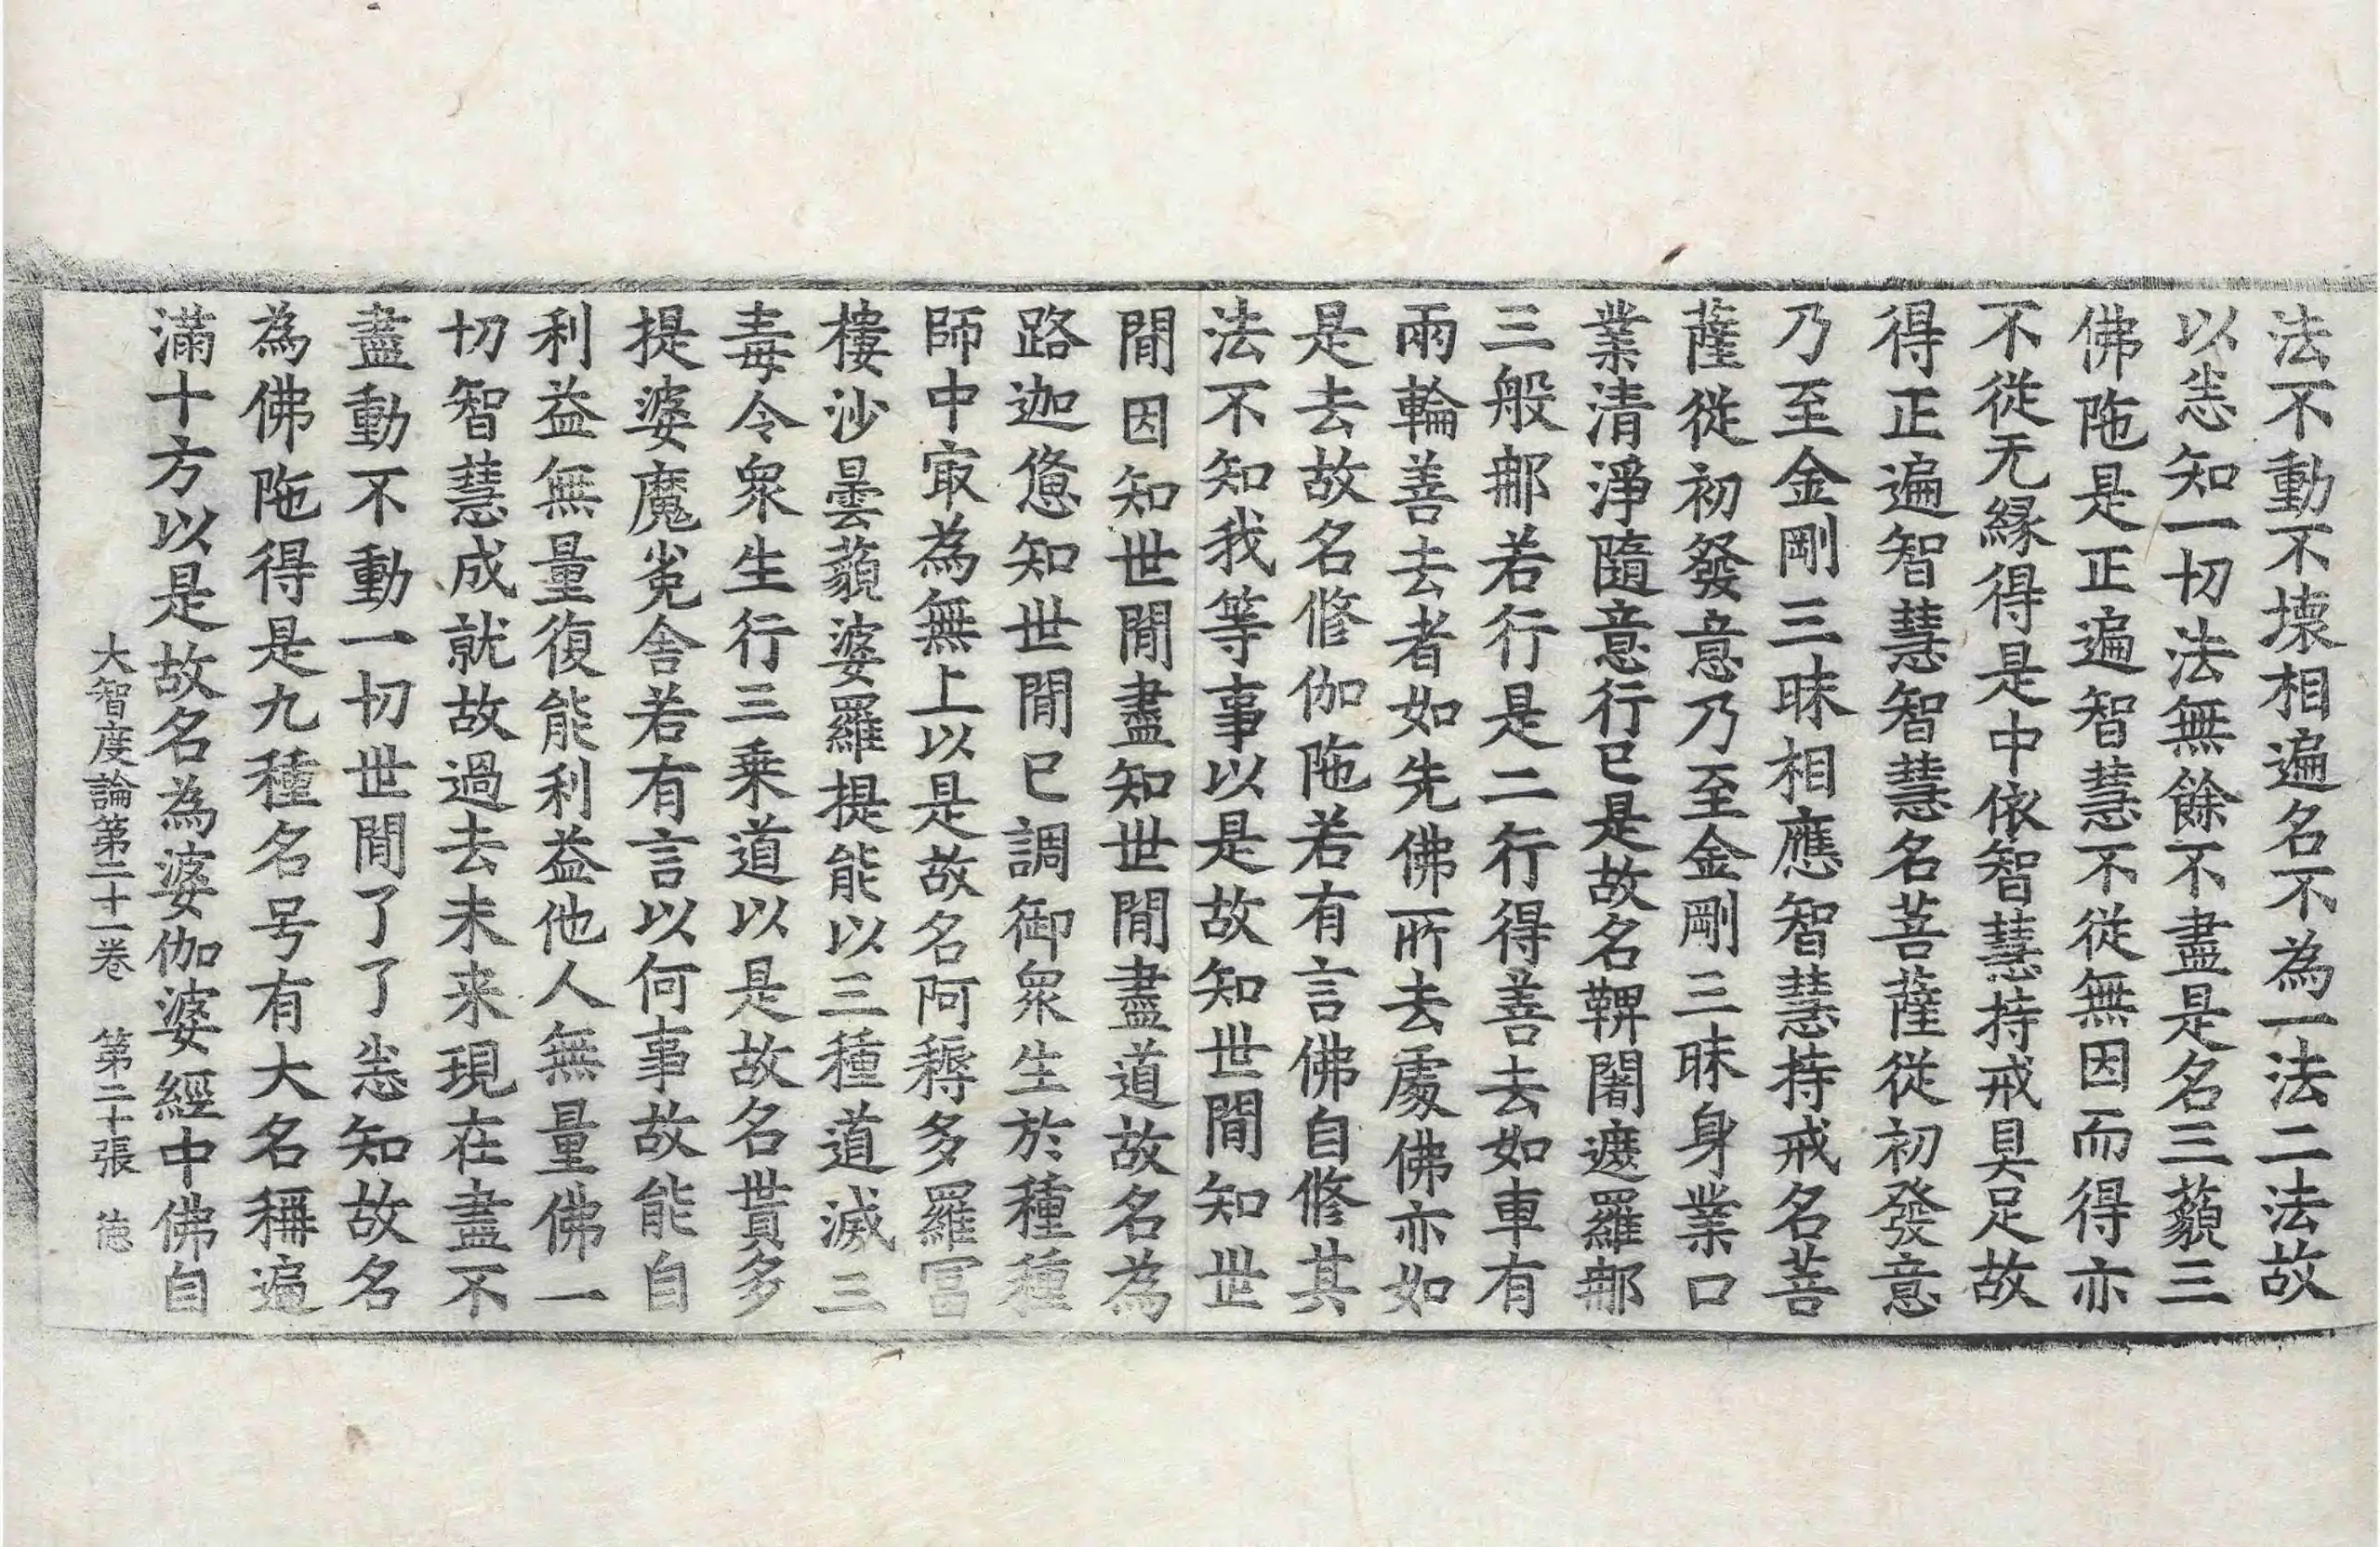 法不動不壊相遍名不為一法二法故
以㤿知一切法無餘不盡是名三藐三
佛陁是正遍智慧不從無因而得亦
不從无緣得是中依智慧持戒具足故
得正遍智慧智慧名菩薩從初發意
乃至金剛三昧相應智慧持戒名菩
薩從初發意乃至金剛三昧身業口
業清淨隨意行已是故名鞞闍遮羅那
三般那若行是二行得善去如車有
兩輪善去者如先佛所去處佛亦如
是去故名修伽陁若有言佛自修其
法不知我等事以是故知世間知世
間因知世間盡知世間盡道故名為
路迦憊知世間已調御衆生於種種
師中㝡為無上以是故名阿耨多羅冨
樓沙曇藐婆羅提能以三種道滅三
毒令衆生行三乗道以是故名貰多
提婆魔㝹舍若有言以何事故能自
利益無量復能利益他人無量佛一
切智慧成就故過去未来現在盡不
盡動不動一切世間了了㤿知故名
為佛陁得是九種名号有大名稱遍
滿十方以是故名為婆伽婆經中佛自
大智度論第二十一卷 第二十張 㥁